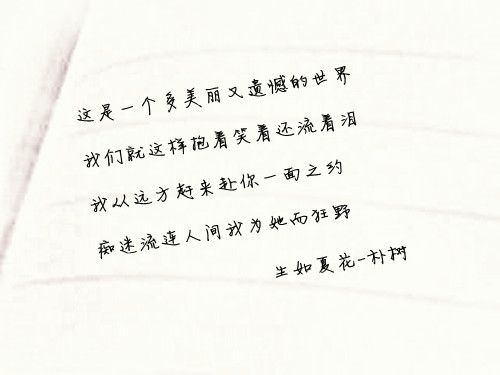 这是一个多美丽又遗憾的世界
我们就这样抱着笑着还流着泪
我从远方赶来赴你一面之约
痴迷流连人间我为她而狂野
生如夏花-朴树